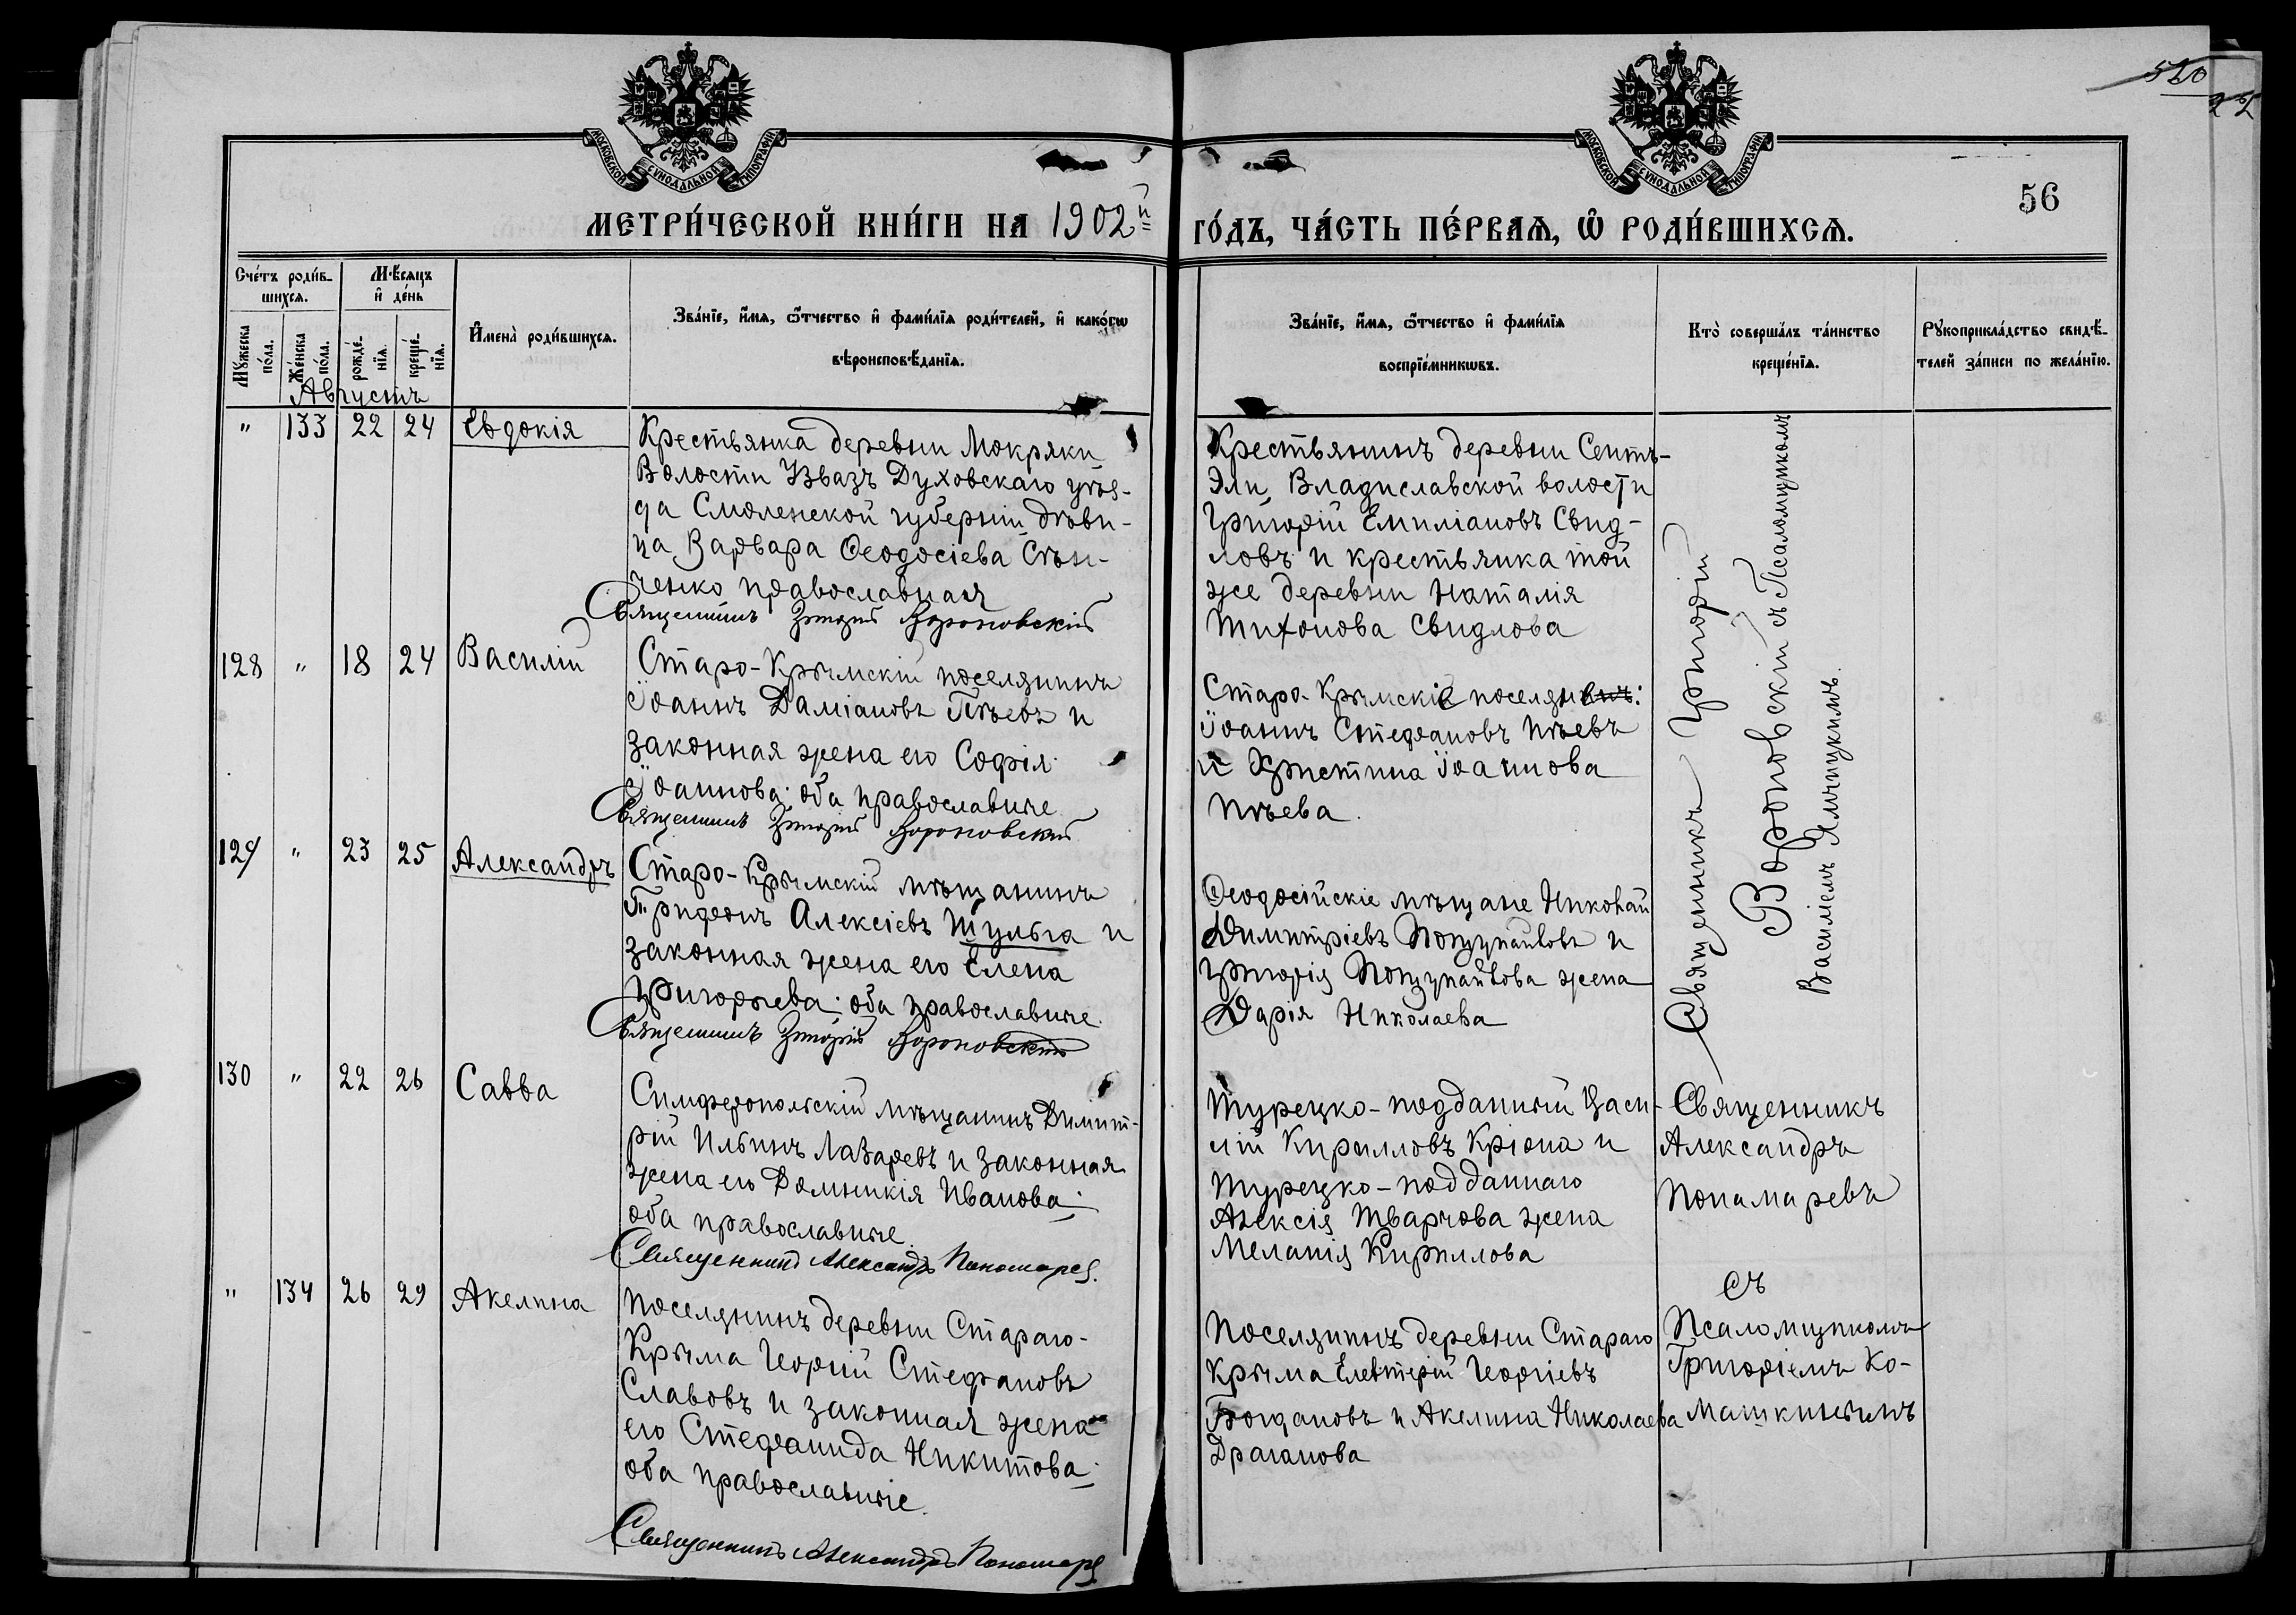 520
22
МОСКОВСКОЙ СѴНОДАЛЬНОЙ ТИПОГРАФІИ
МОСКОВСКОЙ СѴНОДАЛЬНОЙ ТИПОГРАФІИ
56
МЕТРИ́ЧЕСКОЙ КНИ́ГИ НА 1902й ГО́ДЪ, ЧА́СТЬ ПЕ́РВАѦ, Ѽ РОДИ́ВШИХСѦ.
Сче́тъ роди́в-
шихсѧ.
Мѣ́сяцъ
и҆ де́нь
Мꙋ́жеска
по́ла.
Же́нска
по́ла.
рожде́-
нїѧ.
креще́-
нїѧ.
И҆мена̀ роди́вшихсѧ.
Зва́нїе, и҆́мѧ, ѻ҆́тчество и҆ фами́лїѧ роди́телей, и҆ како́гѡ
вѣроисповѣ́данїѧ.
Зва́нїе, и҆́мѧ, ѻ҆́тчество и҆ фами́лїѧ
воспрїе́мникѡвъ.
Кто̀ соверша́лъ та́инство
креще́нїѧ.
Рꙋкоприкла́дство свидѣ́-
телей за́писи по жела́нїю.
Августъ
" 133 22 24 Евдокія
Крестьянка деревни Мокряки
Волости Звазъ Духовскаго уѣз-
да Смоленской губерніи дѣви-
ца Варвара Ѳеодосіева Сѣн-
ченко православная
Священникъ Григорій Вороновскій
Крестьянинъ деревни Сентъ-
Эли, Владиславской волости
Григорій Емиліановъ Свид-
ловъ и крестьянка той
же деревни Наталія
Тихонова Свидлова
Священникъ Григорій
Вороновскій съ Псаломщикомъ
Василіемъ Ялчицкимъ.
128 " 18 24 Василій
Старо-Крымскій поселянинъ
Іоаннъ Даміановъ Пѣевъ и
законная жена его Софія
Іоаннова; оба православные
Священникъ Григорій Вороновскій
Старо-Крымскіе поселяне:
Іоаннъ Стефановъ Пѣевъ
и Христина Іоаннова
Пѣева.
129 " 23 25 Александръ
Старо-Крымскій мѣщанинъ
Трифонъ Алексіевъ Шульга и
законная жена его Елена
Григорьева; оба православные.
Священникъ Григорій Вороновскій
Ѳеодосійскіе мѣщане Николай
Димитріевъ и
Григорія жена
Дарія Николаева
130 " 22 26 Савва
Симферопольскій мѣщанинъ Димит-
рій Ильинъ Лазаревъ и законная
жена его Домникія Иванова;
оба православные.
Священникъ Александръ Пономаревъ.
Турецко-подданный Васи-
лій Кирилловъ Кріона и
Турецко-подданнаго
Алексія Тварчова жена
Меланія Кириллова
Священникъ
Александръ
Понамаревъ
съ
Псаломщикомъ
Григоріемъ Ко-
машкинымъ
" 134 26 29 Акелина
Поселянинъ деревни Стараго-
Крыма Георгій Стефановъ
Славовъ и законная жена
его Стефанида Никитова;
оба православные.
Священникъ Александръ Пономаревъ
Поселянинъ деревни Стараго
Крыма Елевтерій Георгіевъ
Богдановъ и Акелина Николаева
Драганова